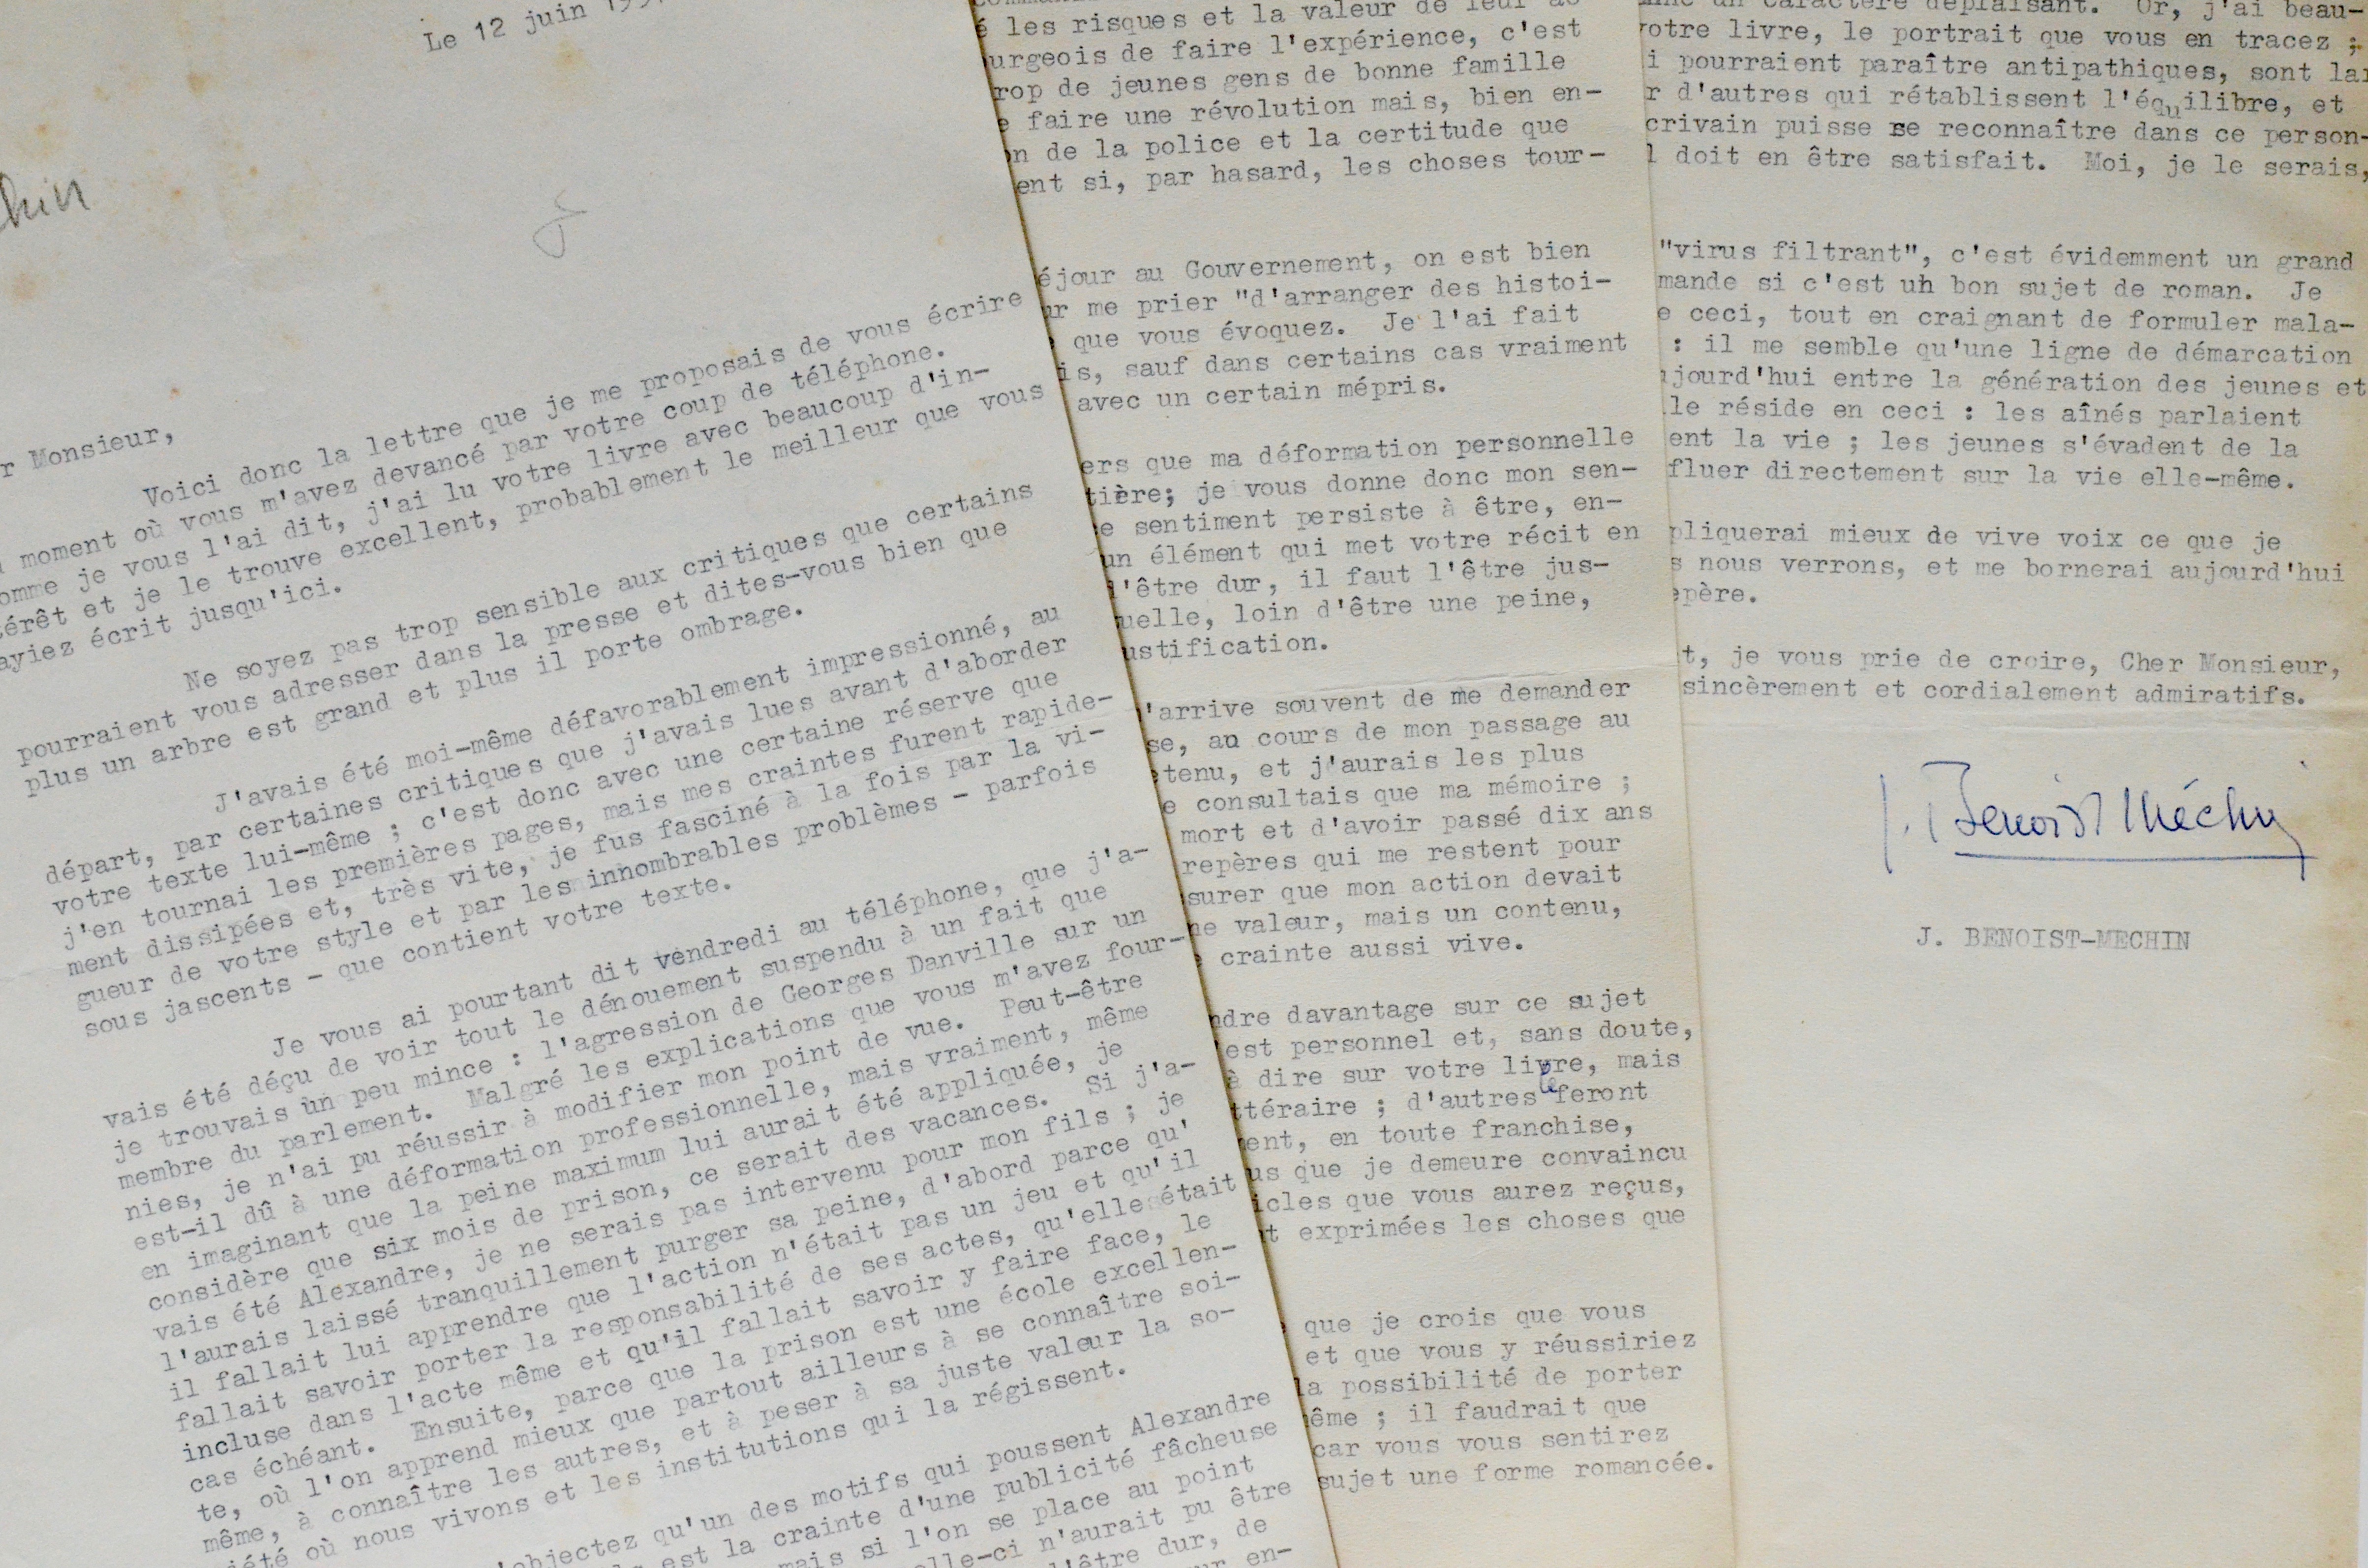 Le 12 juin
Monsieur,
Voici donc la lettre que je me proposais de vous écrire
moment où vous m'avez devancé par votre coup de téléphone.
omme je vous l'ai dit, j'ai lu votre livre avec beaucoup d'in-
térêt et je le trouve excellent, probablement le meilleur que vous
ayiez écrit jusqu'ici.
Ne soyez pas trop sensible aux critiques que certains
pourraient vous adresser dans la presse et dites-vous bien que
plus un arbre est grand et plus il porte ombrage.
J'avais été moi-même défavorablement impressionné, au
départ, par certaines critiques que j'avais lues avant d'aborder
votre texte lui-même ; c'est donc avec une certaine réserve que
j'en tournai les premières pages, mais mes craintes furent rapide-
ment dissipées et, très vite, je fus fasciné à la fois par la vi-
gueur de votre style et par les innombrables problèmes - parfois
sous jascents - que contient votre texte.
Je vous ai pourtant dit vendredi au téléphone, que j'a-
vais été déçu de voir tout le dénouement suspendu à un fait que
je trouvais un peu mince : l'agression de Georges Danville sur un
membre du parlement. Malgré les explications que vous m'avez four-
nies, je n'ai pu réussir à modifier mon point de vue. Peut-être
est-il dû à une déformation professionnelle, mais vraiment, même
en imaginant que la peine maximum lui aurait été appliquée, je
considère que six mois de prison, ce serait des vacances. Si j'a-
vais été Alexandre, je ne serais pas intervenu pour mon fils ; je
l'aurais laissé tranquillement purger sa peine, d'abord parce qu'
il fallait lui apprendre que l'action n'était pas un jeu et qu'il
fallait savoir porter la responsabilité de ses actes, qu'elle était
incluse dans l'acte même et qu'il fallait savoir y faire face, le
cas échéant. Ensuite, parce que la prison est une école excellen-
te, où l'on apprend mieux que partout ailleurs à se connaître soi-
même, à connaître les autres, et à peser à sa juste valeur la so-
iété où nous vivons et les institutions qui la régissent.
objectez qu'un des motifs qui poussent Alexandre
est la crainte d'une publicité fâcheuse
mais si l'on se place au point
elle-ci n'aurait pu être
l'être dur, de
en-
les risques et la valeur de leur
urgeois de faire l'expérience, c'est
rop de jeunes gens de bonne famille
faire une révolution mais, bien en-
on de la police et la certitude que
ent si, par hasard, les choses tour-
éjour au Gouvernement, on est bien
ur me prier "d'arranger des histoi-
que vous évoquez. Je l'ai fait
is, sauf dans certains cas vraiment
avec un certain mépris.
ers que ma déformation personnelle
tière; je vous donne donc mon sen-
e sentiment persiste à être, en-
un élément qui met votre récit en
l'être dur, il faut l'être jus-
uelle, loin d'être une peine,
ustification.
'arrive souvent de me demander
se, au cours de mon passage au
tenu, et j'aurais les plus
e consultais que ma mémoire ;
mort et d'avoir passé dix ans
repères qui me restent pour
surer que mon action devait
ne valeur, mais un contenu,
crainte aussi vive.
ndre davantage sur ce sujet
est personnel et, sans doute,
à dire sur votre livre, mais
ttéraire ; d'autres le feront
ent, en toute franchise,
us que je demeure convaincu
icles que vous aurez reçus,
t exprimées les choses que
que je crois que vous
et que vous y réussiriez
la possibilité de porter
ême ; il faudrait que
car vous vous sentirez
sujet une forme romancée.
un caractère déplaisant. Or, j'ai beau-
votre livre, le portrait que vous en tracez ;
i pourraient paraître antipathiques, sont
r d'autres qui rétablissent l'équilibre, et
crivain puisse se reconnaître dans ce person-
l doit en être satisfait. Moi, je le serais,
"virus filtrant", c'est évidemment un grand
mande si c'est un bon sujet de roman. Je
e ceci, tout en craignant de formuler mala-
: il me semble qu'une ligne de démarcation
ujourd'hui entre la génération des jeunes et
le réside en ceci : les aînés parlaient
ent la vie ; les jeunes s'évadent de la
fluer directement sur la vie elle-même.
pliquerai mieux de vive voix ce que je
s nous verrons, et me bornerai aujourd'hui
epère.
t, je vous prie de croire, Cher Monsieur,
sincèrement et cordialement admiratifs.
J. Benoist Méchin
J. BENOIST-MECHIN